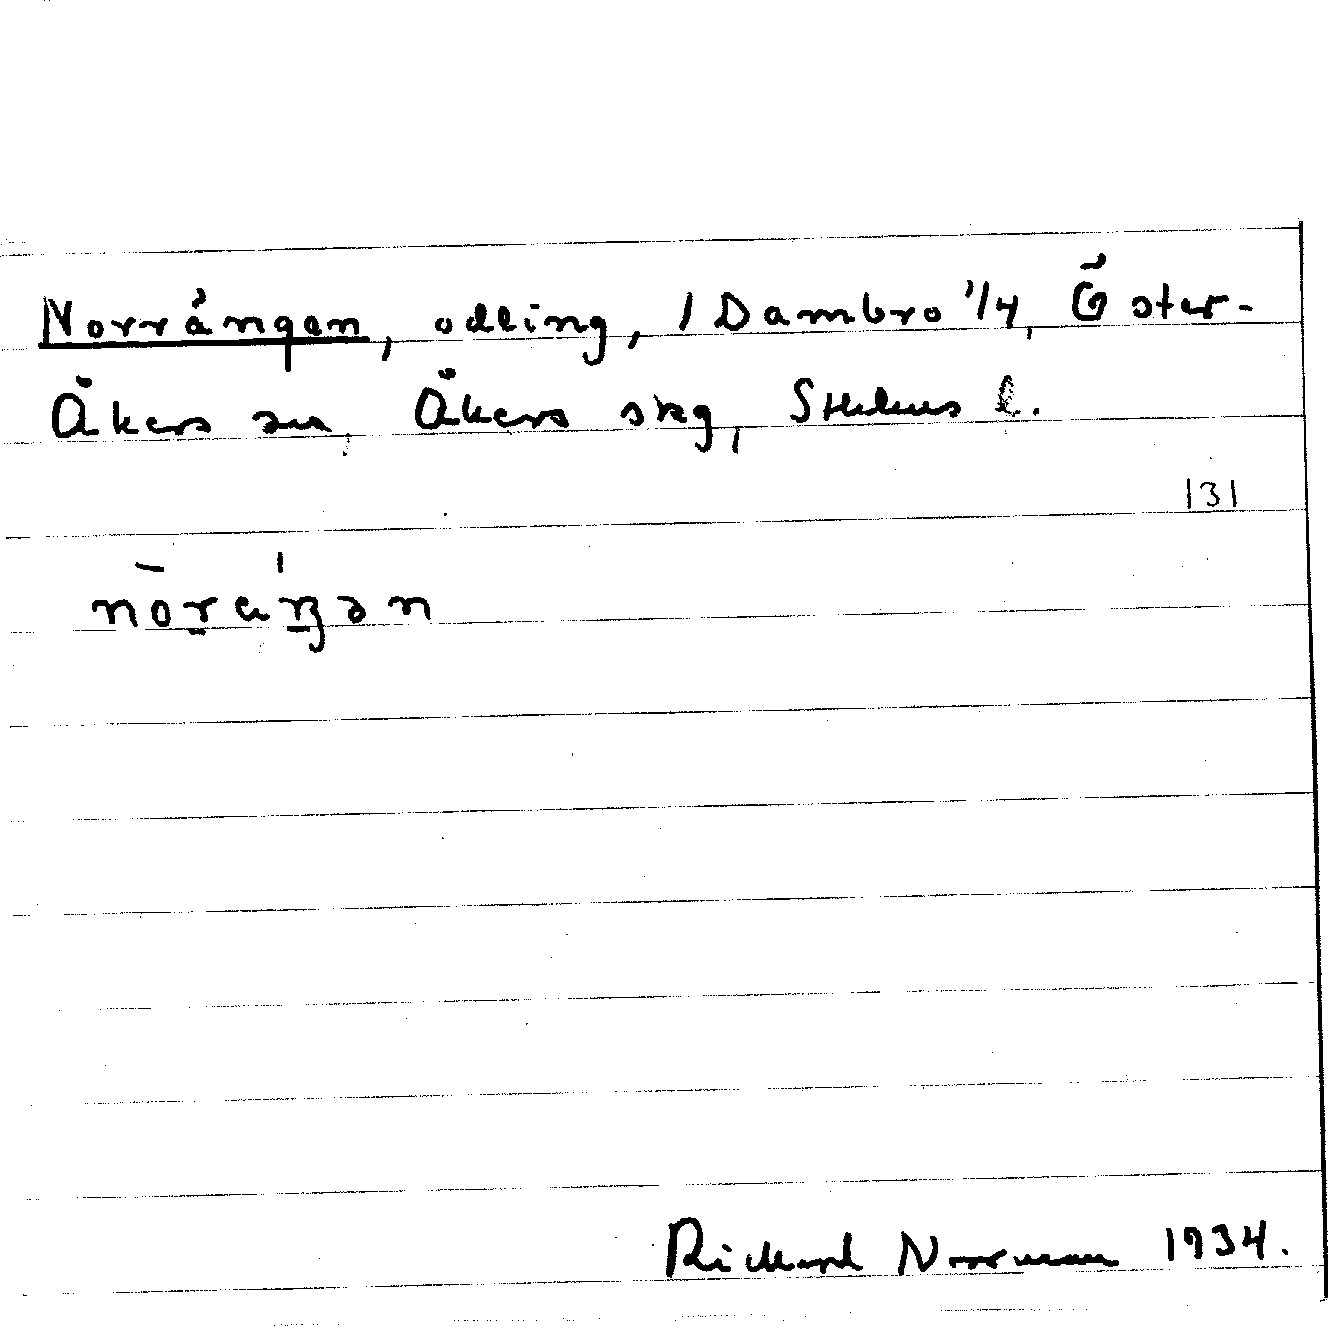 Norrängen, odling, / Dambro 1/4, Öster-
Åkers sn, Åkers skg, Sthlms l.
131
Rickard Norrman 1934.